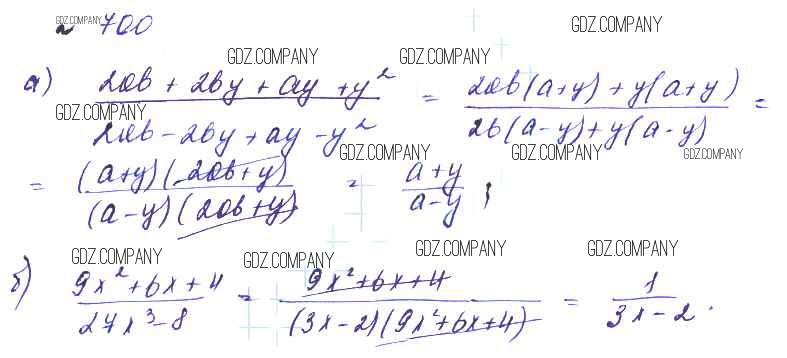 № 700 GDZ.COMPANY GDZ.COMPANY
GDZ.COMPANY GDZ.COMPANY
а) (2ab + 2by + ay + y²)/(2ab - 2by + ay - y²) = (2ab(a+y) + y(a+y))/(2b(a-y) + y(a-y)) =
GDZ.COMPANY GDZ.COMPANY GDZ.COMPANY GDZ.COMPANY
= ((a+y)(2ab+y))/((a-y)(2ab+y)) = (a+y)/(a-y);
GDZ.COMPANY GDZ.COMPANY GDZ.COMPANY GDZ.COMPANY
б) (9x² + 6x + 4)/(27x³ - 8) = (9x² + 6x + 4)/((3x - 2)(9x² + 6x + 4)) = 1/(3x - 2).